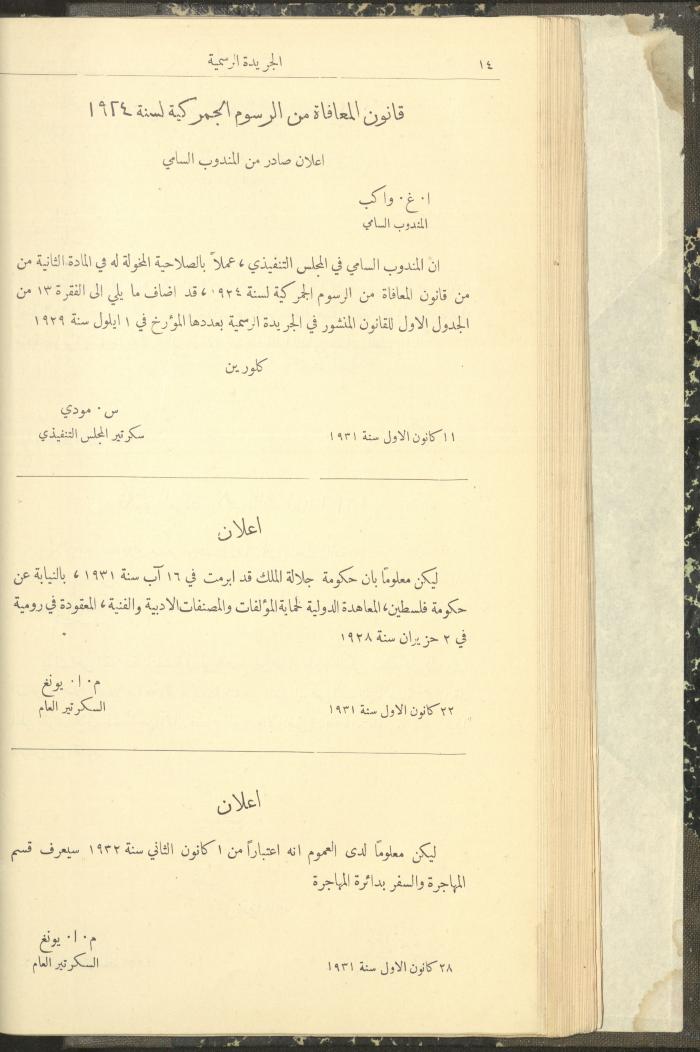 ١٤
الجريدة الرسمية
قانون المعافاة من الرسوم الجمركية لسنة ١٩٢٤
اعلان صادر من المندوب السامي
ا٠ غ٠ واكب
المندوب السامي
ان المندوب السامي في المجلس التنفيذي، عملاً بالصلاحية المخولة له في المادة الثانية من
من قانون المعافاة من الرسوم الجمركية لسنة ٩٢٤، قد اضاف ما يلي الى الفقرة ١٣ من
الجدول الاول للقانون المنشور في الجريدة الرسمية بعددها المؤرخ في ١ ايلول سنة ١٩٢٩
كلورين
س٠ مودي
١١ كانون الاول سنة ١٩٣١
سكرتير المجلس التنفيذي
اعلان
ليكن معلومًا بان حكومة جلالة الملك قد ابرمت في ١٦ آب سنة ١٩٣١، بالنيابة عن
حكومة فلسطين، المعاهدة الدولية لحماية المؤلفات والمصنفات الادبية والفنية، المعقودة في رومية
في ٢ حزيران سنة ١٩٢٨
م٠ ا٠ يونغ
٢٢ كانون الاول سنة ١٩٣١
السكرتير العام
اعلان
ليكن معلومًا لدى العموم انه اعتبارًا من ١ كانون الثاني سنة ١٩٣٢ سيعرف قسم
المهاجرة والسفر بدائرة المهاجرة
م٠ ا٠ يونغ
٢٨ كانون الاول سنة ١٩٣١
السكرتير العام